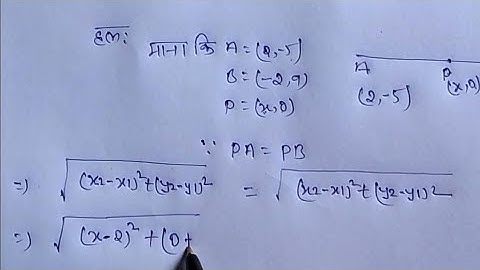 हल:
माना कि A = (2,-5)
B = (-2,9)
P = (x,0)
A P
(2,-5) (x,0)
∵ PA = PB
=) √(x2-x1)²+(y2-y1)² = √(x2-x1)²+(y2-y1)²
=) √(x-2)²+(0+